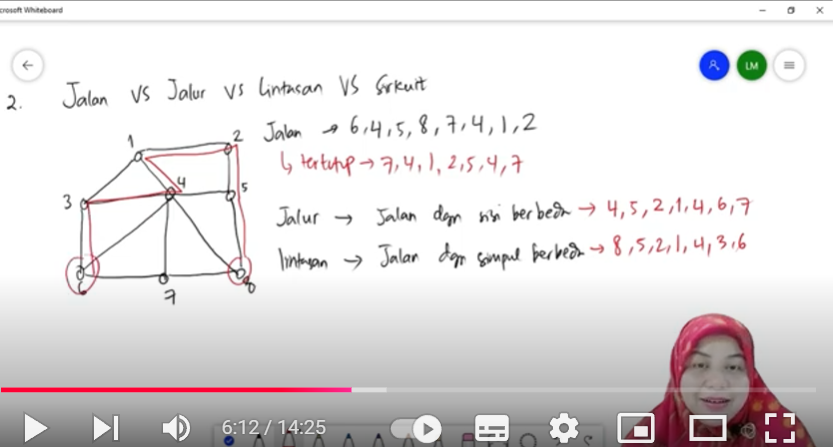 crosoft Whiteboard
LM
2. Jalan vs Jalur vs lintasan vs sirkuit
Jalan → 6,4,5,8,7,4,1,2
↳ tertutup → 7,4,1,2,5,4,7
Jalur → Jalan dgn sisi berbeda → 4,5,2,1,4,6,7
lintasan → Jalan dgn simpul berbeda → 8,5,2,1,4,3,6
1
2
4
5
3
6
8
7
6:12 / 14:25